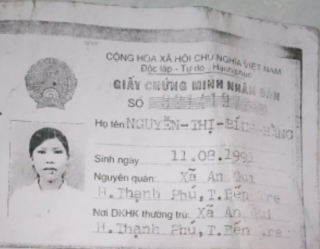 CỘNG HÒA XÃ HỘI CHỦ NGHĨA VIỆT NAM
Độc lập - Tự do - Hạnh phúc
GIẤY CHỨNG MINH NHÂN DÂN
SỐ
Họ tên: NGUYỄN-THỊ-BÍCH-
Sinh ngày 11.08.1991
Nguyên quán: Xã An Qui
H.Thạnh Phú, T.Bến Tre
Nơi ĐKHK thường trú: Xã An Qui
H.Thạnh Phú, T.Bến Tre